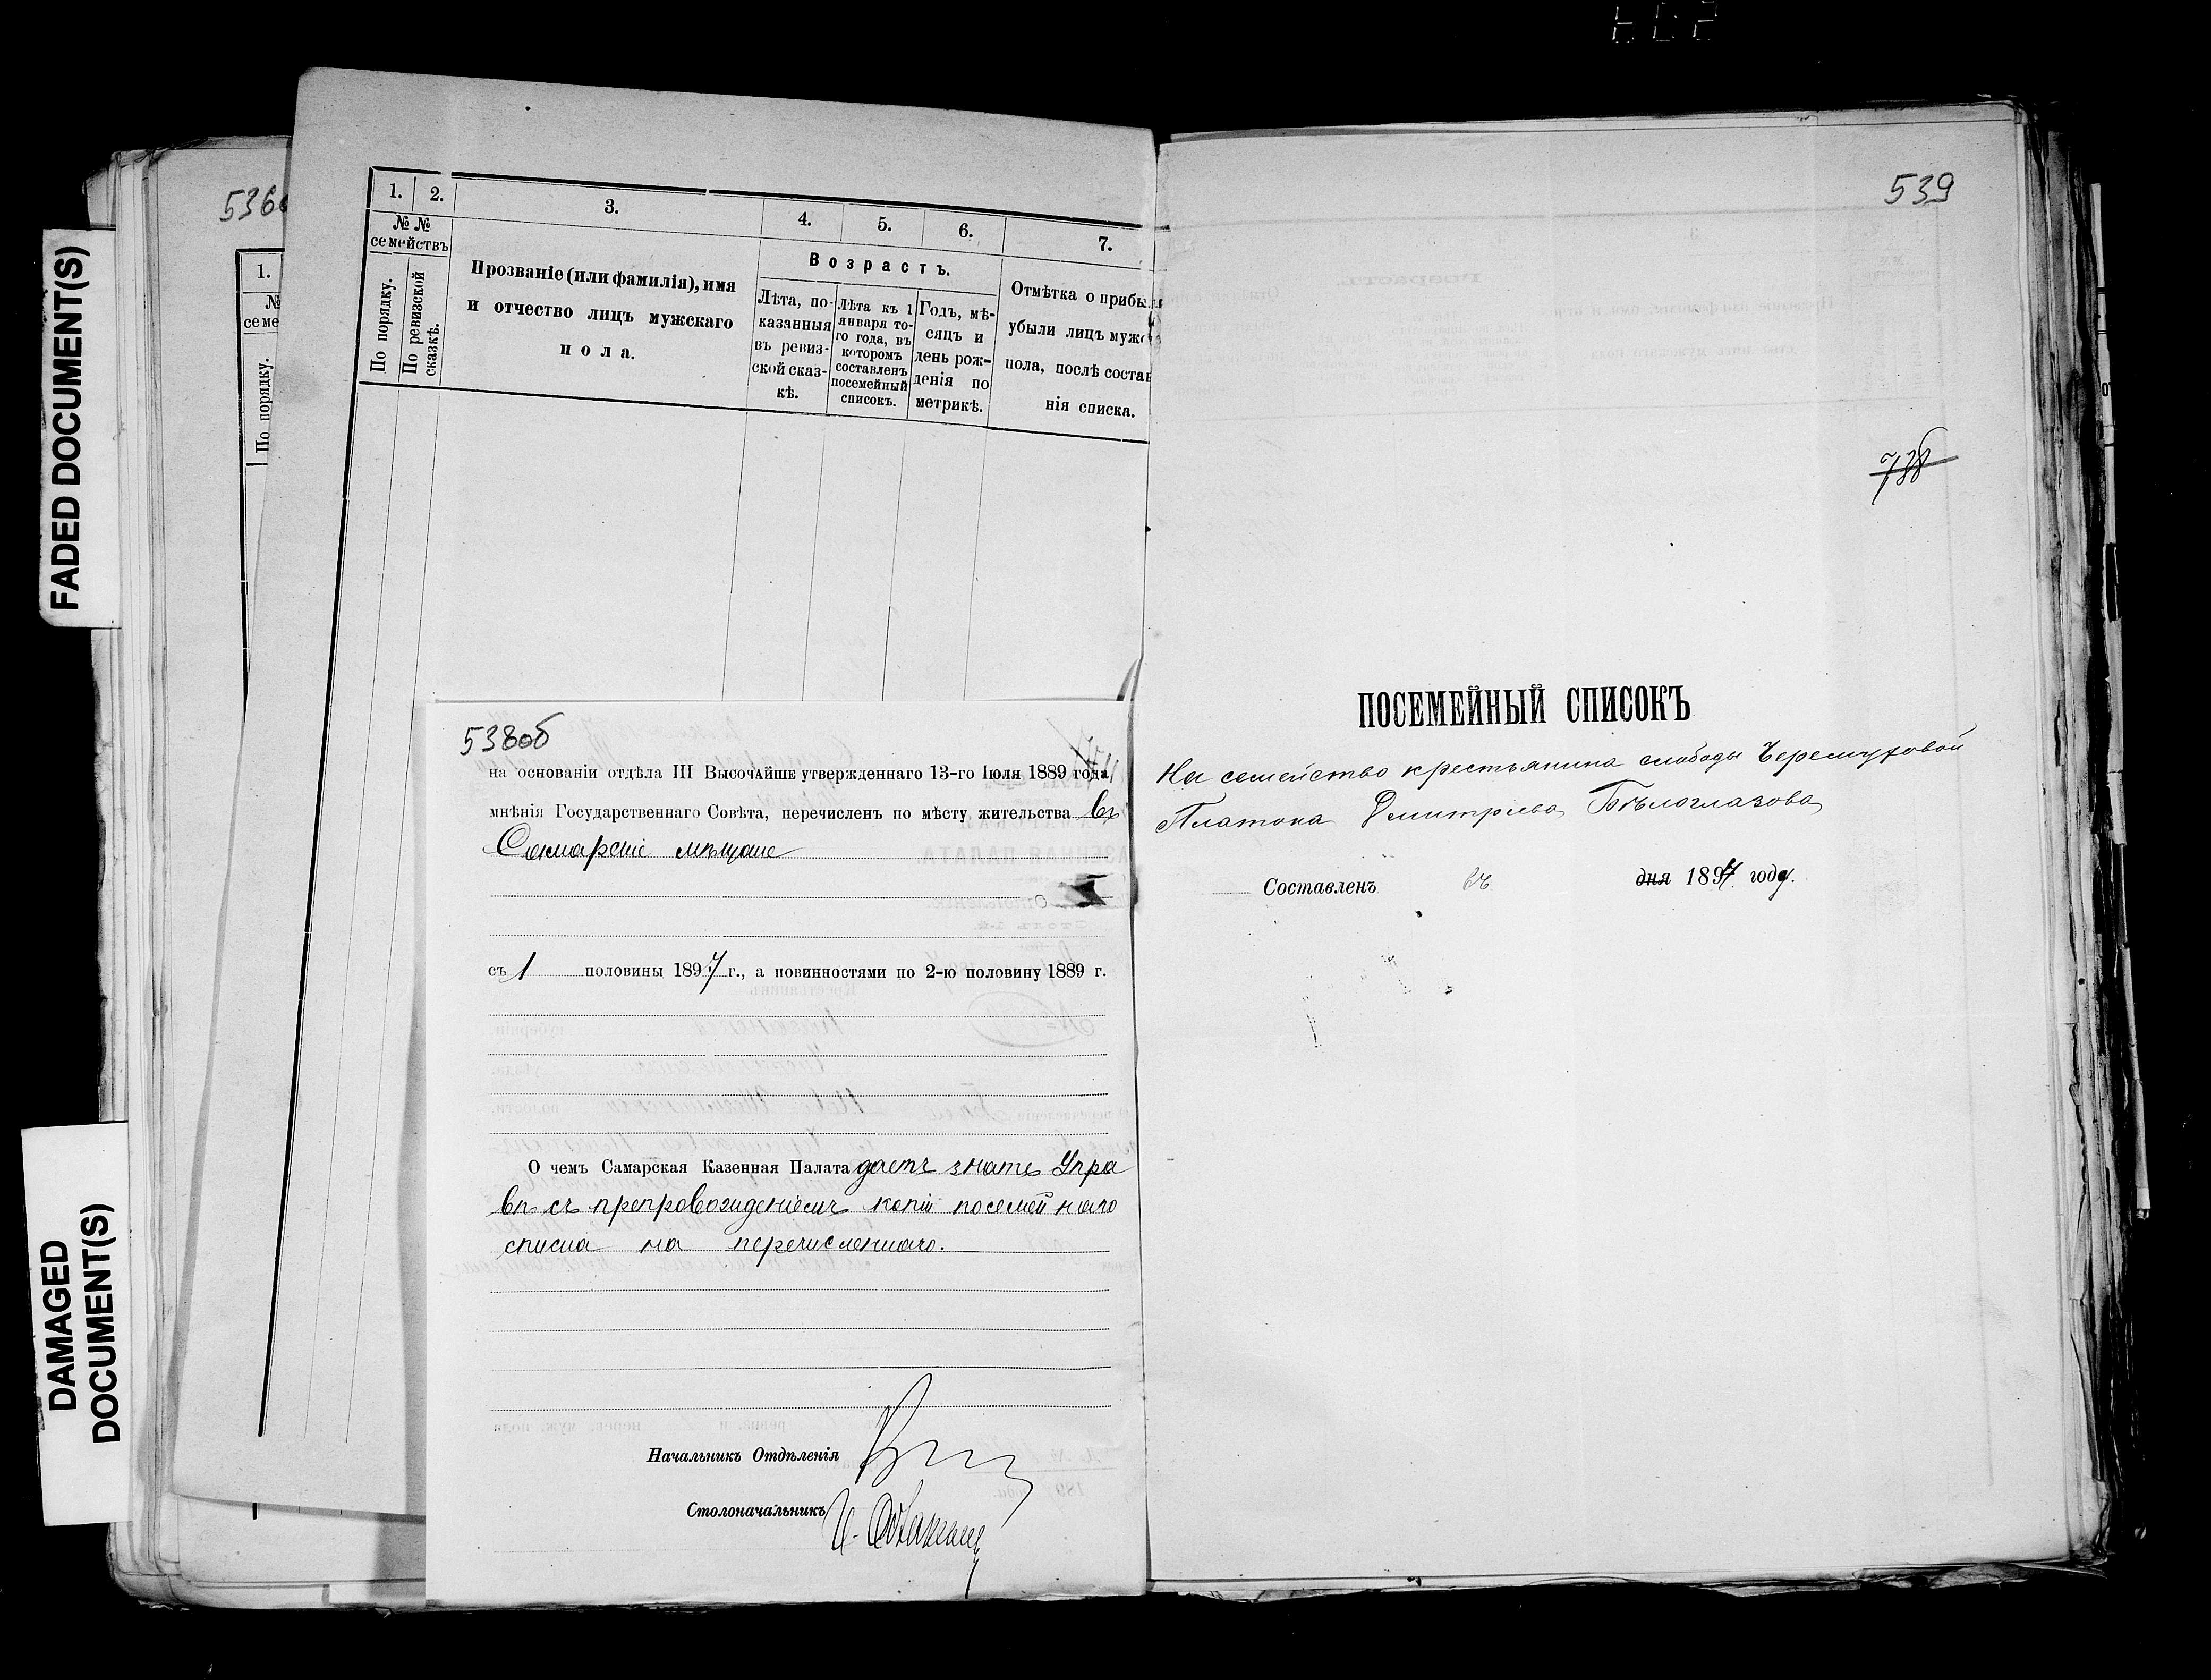 FADED DOCUMENT(S)
DAMAGED
DOCUMENT(S)
536
1.
№
семе
По порядку.
1. 2. 3. 4. 5. 6. 7.
№ №
семействъ
По порядку.
По ревизской
сказкѣ.
Прозваніе (или фамилія), имя
и отчество лицъ мужскаго
пола.
Возрастъ.
Лѣта, по-
казанныя
въ ревиз-
ской сказ-
кѣ.
Лѣта къ 1
января то-
го года, въ
которомъ
составленъ
посемейный
списокъ.
Годъ, мѣ-
сяцъ и
день рож-
денія по
метрикѣ.
Отмѣтка о прибы
убыли лицъ муж
пола, послѣ состав
нія списка.
538об
на основаніи отдѣла III Высочайше утвержденнаго 13-го Іюля 1889 года,
мнѣнія Государственнаго Совѣта, перечисленъ по мѣсту жительства въ
Самарскіе мѣщане
съ 1 половины 1897 г., а повинностями по 2-ю половину 1889 г.
О чемъ Самарская Казенная Палата даетъ знать Упра
вѣ съ препровожденіемъ копіи посемейнаго
списка на перечисленнаго.
Начальникъ Отдѣленія
Столоначальникъ
539
738
ПОСЕМЕЙНЫЙ СПИСОКЪ
На семейство крестьянина слободы Черемуховой
Платона Дмитріева Бѣлоглазова
Составленъ въ дня 1897 году.